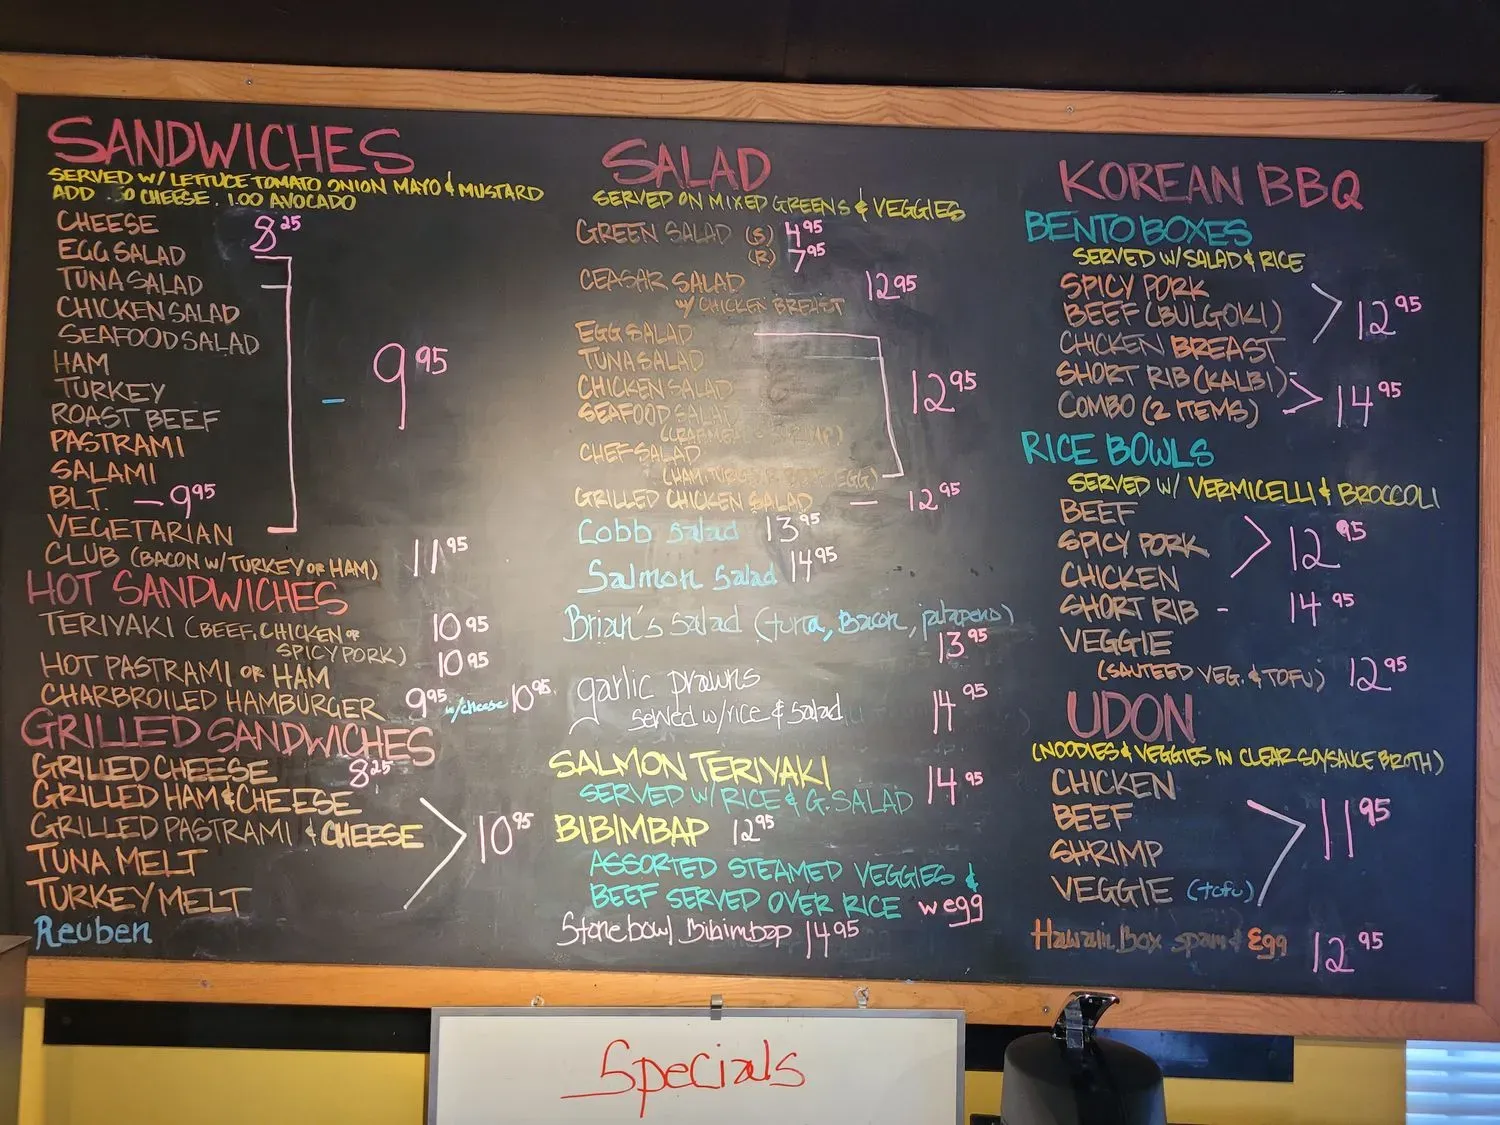 SANDWICHES
SERVED W/ LETTUCE TOMATO ONION MAYO & MUSTARD
ADD 0 CHEESE. 1.00 AVOCADO
CHEESE 8.25
EGG SALAD
TUNA SALAD
CHICKEN SALAD
SEAFOOD SALAD
HAM
TURKEY
ROAST BEEF
PASTRAMI
SALAMI
- 9.95
B.L.T. - 9.95
VEGETARIAN
CLUB (BACON W/TURKEY OR HAM) 11.95
HOT SANDWICHES
TERIYAKI (BEEF, CHICKEN OR 10.95
SPICY PORK)
HOT PASTRAMI OR HAM 10.95
CHARBROILED HAMBURGER 9.95 w/cheese 10.95
GRILLED SANDWICHES
GRILLED CHEESE 8.25
GRILLED HAM & CHEESE
GRILLED PASTRAMI & CHEESE 10.95
TUNA MELT
TURKEY MELT
Reuben
SALAD
SERVED ON MIXED GREENS & VEGGIES
GREEN SALAD (S) 4.95
(R) 7.95
CEASAR SALAD 12.95
W/ CHICKEN BREAST
EGG SALAD
TUNA SALAD
CHICKEN SALAD 12.95
SEAFOOD SALAD
CHEF SALAD
EGG)
GRILLED CHICKEN SALAD - 12.95
Cobb salad 13.95
Salmon Salad 14.95
Brian's Salad (tuna, Bacon, jalapeno)
13.95
garlic prawns
served w/rice & salad 14.95
SALMON TERIYAKI
SERVED W/ RICE & G. SALAD 14.95
BIBIMBAP 12.95
ASSORTED STEAMED VEGGIES &
BEEF SERVED OVER RICE w egg
Stonebowl Bibimbap 14.95
KOREAN BBQ
BENTO BOXES
SERVED W/ SALAD & RICE
SPICY PORK
BEEF (BULGOKI) 12.95
CHICKEN BREAST
SHORT RIB (KALBI)
COMBO (2 ITEMS) 14.95
RICE BOWLS
SERVED W/ VERMICELLI & BROCCOLI
BEEF
SPICY PORK 12.95
CHICKEN
SHORT RIB - 14.95
VEGGIE
(SAUTEED VEG. & TOFU) 12.95
UDON
(NOODLES & VEGGIES IN CLEAR SOYSAUCE BROTH)
CHICKEN
BEEF
SHRIMP 11.95
VEGGIE (tofu)
Hawaiin Box spam & Egg 12.95
Specials